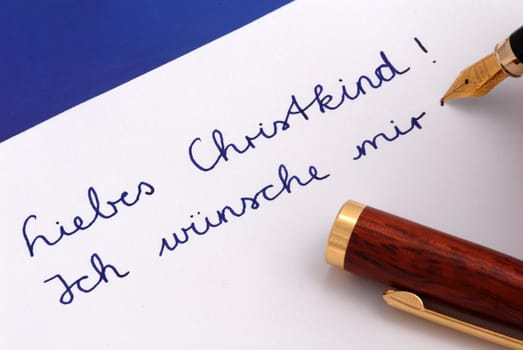 Liebes Christkind!
Ich wünsche mir